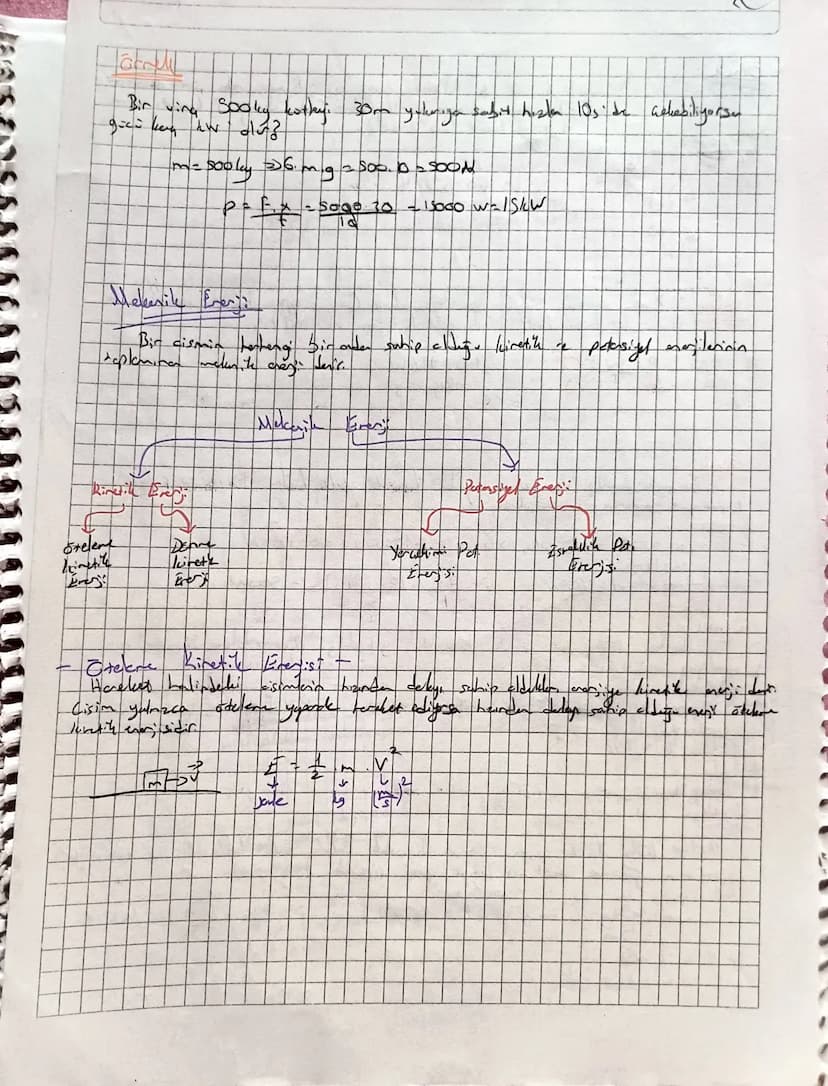 Örnek
Bir vinç 500kg kütleyi 30m yukarıya sabit hızla 10s'de çekebiliyorsa
gücü kaç kW olur?
m=500kg => G=m.g=500.10=500N
P = F.x/t = 5000.30/10 = 15000 W=15kW
Mekanik Enerji
Bir cismin herhangi bir anda sahip olduğu kinetik ve potansiyel enerjilerinin
toplamına mekanik enerji denir.
Mekanik Enerji
Kinetik Enerji Potansiyel Enerji
Öteleme Dönme Yerçekimi Pot. Esneklik Pot.
kinetik kinetik Enerjisi Enerjisi
Enerji Enerji
- Öteleme Kinetik Enerjisi -
Hareket halindeki cisimlerin hızından dolayı sahip oldukları enerjiye kinetik enerji denir.
Cisim yalnızca öteleme yaparak hareket ediyorsa hızından dolayı sahip olduğu enerji öteleme
kinetik enerjisidir.
m → v⃗ E = 1/2 . m . V²
Joule kg (m/s)²